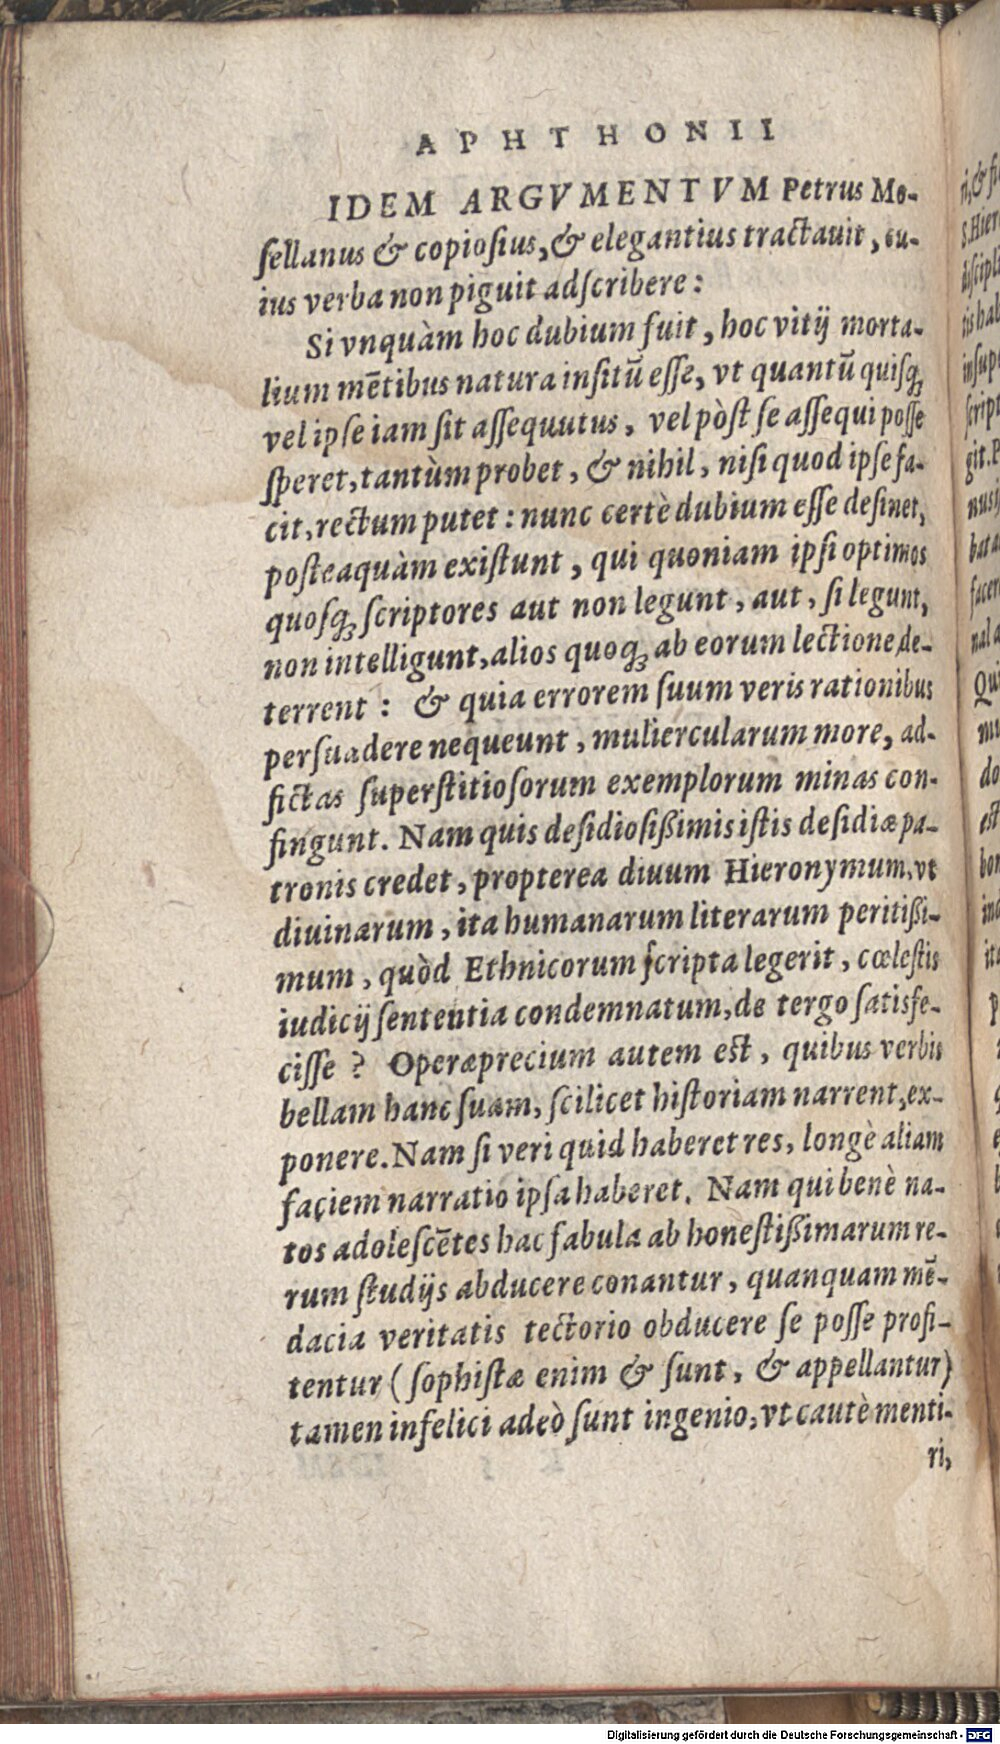 APHTHONII
IDEM ARGVMENTVM Petrus Mo-
ſellanus & copioſius, & elegantius tractauit, cu-
ius verba non piguit adſcribere:
Si vnquàm hoc dubium fuit, hoc vitij morta-
lium mẽtibus natura inſitũ eſſe, vt quantũ quiſq́;
vel ipſe iam ſit aſſequutus, vel pòſt ſe aſſequi poſſe
ſperet, tantùm probet, & nihil, niſi quod ipſe fa-
cit, rectum putet: nunc certè dubium eſſe deſinet,
poſteaquàm exiſtunt, qui quoniam ipſi optimos
quoſq́; ſcriptores aut non legunt, aut, ſi legunt,
non intelligunt, alios quoq́; ab eorum lectione de-
terrent: & quia errorem ſuum veris rationibus
perſuadere nequeunt, muliercularum more, ad-
fictas ſuperſtitioſorum exemplorum minas con-
fingunt. Nam quis deſidioſißimis iſtis deſidiæ pa-
tronis credet, propterea diuum Hieronymum, vt
diuinarum, ita humanarum literarum peritißi-
mum, quòd Ethnicorum ſcripta legerit, cœleſtis
iudicij ſententia condemnatum, de tergo ſatisfe-
ciſſe? Operæprecium autem eſt, quibus verbis
bellam hanc ſuam, ſcilicet hiſtoriam narrent, ex-
ponere. Nam ſi veri quid haberet res, longè aliam
faciem narratio ipſa haberet. Nam qui benè na-
tos adoleſcẽtes hac fabula ab honeſtißimarum re-
rum ſtudijs abducere conantur, quanquam mẽ-
dacia veritatis tectorio obducere ſe poſſe profi-
tentur (ſophiſtæ enim & ſunt, & appellantur)
tamen infelici adeò ſunt ingenio, vt cautè menti-
ri,
Digitalisierung gefördert durch die Deutsche Forschungsgemeinschaft - DFG